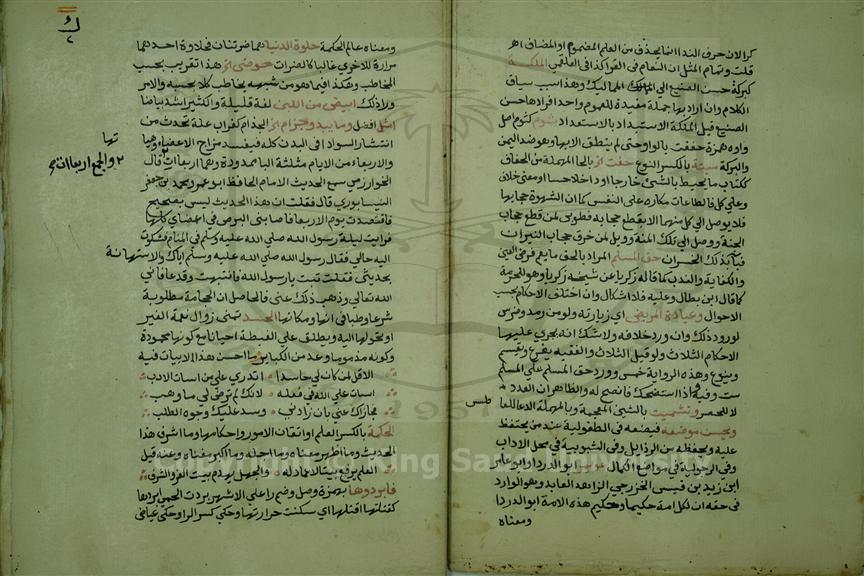 كرالان حرف الندا انما يحذف من العلم المضموم او المضاف اهـ
قلت وتمام المثل ان النعام في القرا كذا في العلقمي الملكة
كبركة حسن الصنيع الى المماليك وهذا سبب سياق
الكلام وان اراد بها جملة مفيدة للعموم واحد افرادها حسن
الصنيع قبل الملكة الاستبداد بالاستعداد شوم كثوم اصل
واوه همزة خففت بالواو حتى لم ينطق الا بها وهو ضد اليمن
والبركة ميتة بالكسر النوع حفت الخ بالحا المهملة من الحفاف
ككتاب ما يحيط بالشيء خارجا او داخلا حسا او معنى خلاف
وعلى كل فالطاعات مكاره على النفس كما ان الشهوة حجابها
فلا يوصل الى كل منهما الا بقطع حجابه فطوبى لمن قطع حجاب
الجنة ووصل الى تلك المنة وويل لمن خرق حجاب النيران
فباء بذلك الخسران حق المسلم المراد بالحق ما يعم فرض العين
والكفاية والندب كما قاله زكريا عن شيخه زكريا وهو الحرمة
كما قال ابن بطال وعليه فلا اشكال وان اختلف الاحكام بحسب
الاحوال وعيادة المريض اي زيارته ولو من رمد وضرس
لورود ذلك وان ورد خلافه ولا شك انه يجري عليها
الاحكام الثلاث ولو قيل الثلاث والفقيه يفرع ويقسم
وينوع وهذه الرواية خمس وورد حق المسلم على المسلم
ست وفيه واذا استنصحك فانصح له والظاهر ان العدد
لا للحصر وتشميت بالشين المعجمة وبالمهملة الدعا للعا
طس
ويحسن موضعه فيضعه في الطفولية عند من يحتفظ
عليه ويحفظه من الرذايل وفي الشبوبية في محل الاداب
وفي الرجولية في مواقع الكمال عويمر ابو الدردا وابو عامر
ابن زيد بن قيس الخزرجي الزاهد العابد وهو الوارد
في حقه ان لكل امة حكيما وحكيم هذه الامة ابو الدردا
ومعناه
ك
ومعناه عالم الحكمة حلوة الدنيا هما ضرتان فحلاوة احدهما
مرارة للاخرى غالبا كالعثرات حوضي الخ هذا تقريب بحسب
المخاطب وهكذا فيما هو من شبهه يخاطب كلا بحسبه والامر
ورا ذلك ابيض من اللبن لغة قليلة والكثير اشد بياضا
امثل افضل وما بيد وجذام الخ الجذام كغراب علة تحدث من
انتشار السواد في البدن كله فيفسد مزاج الاعضاء وهيا
تها
والاربعاء من الايام مثلثة البا ممدودة وهما اربعاآت قال
٢ والجمع اربعاآت صح
الخوارزمي سمع الحديث الامام الحافظ ابو عمرو محمد بن جعفر
النيسابوري قال فقلت ان هذا الحديث ليس بصحيح
فافتصدت يوم الاربعا فاصابني البرص في اعضاي كلها
فرايت ليلة رسول الله صلى الله عليه وسلم في المنام فشكوت
اليه حالي فقال رسول الله صلى الله عليه وسلم اياك والاستهانة
بحديثي فقلت تبت يا رسول الله فانتبهت وقد عافاني
الله تعالى وذهب ذلك عني فالحاصل ان الحجامة مطلوبة
شرعا وطبا في اناتها ومكانها الحسد تمنى زوال نعمة الغير
او تحولها اليه ويطلق على الغبطة احيانا مع كونها محمودة
وكونه مذموما وعد من الكباير وما احسن هذه الابيات فيه
الا قل لمن كان لي حاسدا اتدري على من اسات الادب
اسات على الله في فعله لانك لم ترض لي ما وهب
فجازاك عني بان زادني وسد عليك وجوه الطلب
الحكمة بالكسر العلم او اتقان الامور واحكامها وما اشرف هذا
الحديث وما اظهر معناه وما اجله وما اكبر مغناه وعنه قيل
العلم يرفع بيتا لا عماد له والجهل يهدم بيت العز والشرف
فابردوها بهمزة وصل وضم را على الاشهر بردت الحمى ابردها
كقتلتها اقتلها اي سكنت حرارتها وحكي كسر الرا وحكي عياض